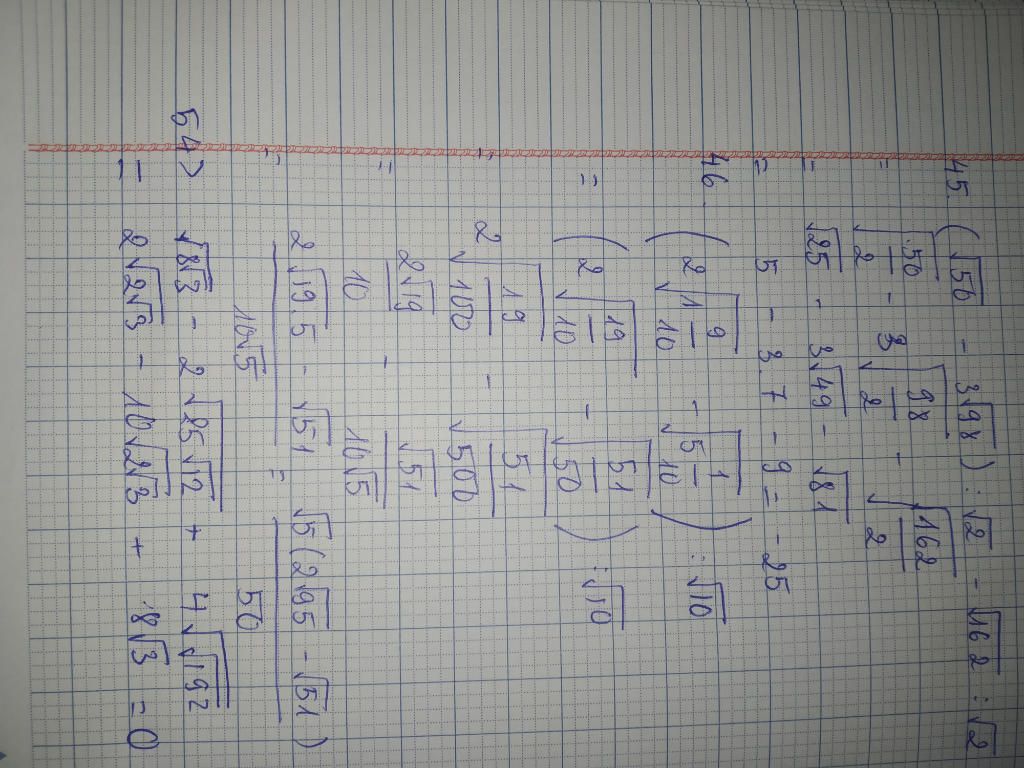 45. (√50 - 3√98) : √2 - √162 : √2
= √(50/2) - 3√(98/2) - √(162/2)
= √25 - 3√49 - √81
= 5 - 3.7 - 9 = -25
46. (2√(1 9/10) - √(5 1/10)) : √10
= (2√(19/10) - √(51/50)) : √10
= 2√(19/100) - √(51/500)
= 2√19/10 - √51/10√5
= (2√19.5 - √51)/10√5 = √5(2√95 - √51)/50
54) √(8√3) - 2√(25√12) + 4√(√192)
= 2√(2√3) - 10√(2√3) + 8√3 = 0